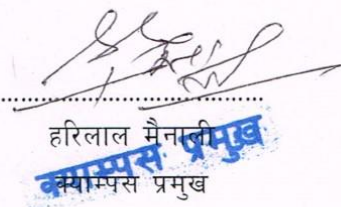 हरिलाल मैनाली
क्याम्पस प्रमुख
क्याम्पस प्रमुख